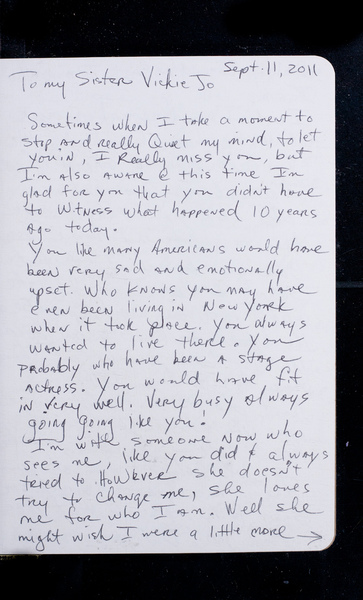 Sept. 11, 2011
To my Sister Vickie Jo
Sometimes when I take a moment to
stop and really Quiet my mind, to let
you in, I Really miss you, but
I'm also aware @ this time I'm
glad for you that you didn't have
to witness what happened 10 years
ago today.
You like many Americans would have
been very sad and emotionally
upset. Who knows you may have
even been living in New York
when it took place. You always
wanted to live there. You
probably who have been a stage
actress. You would have fit
in very well. Very busy always
going going like you!
I'm with someone now who
sees me, like you did & always
tried to. However she doesn't
try to change me, she loves
me for who I am. Well she
might wish I were a little more →